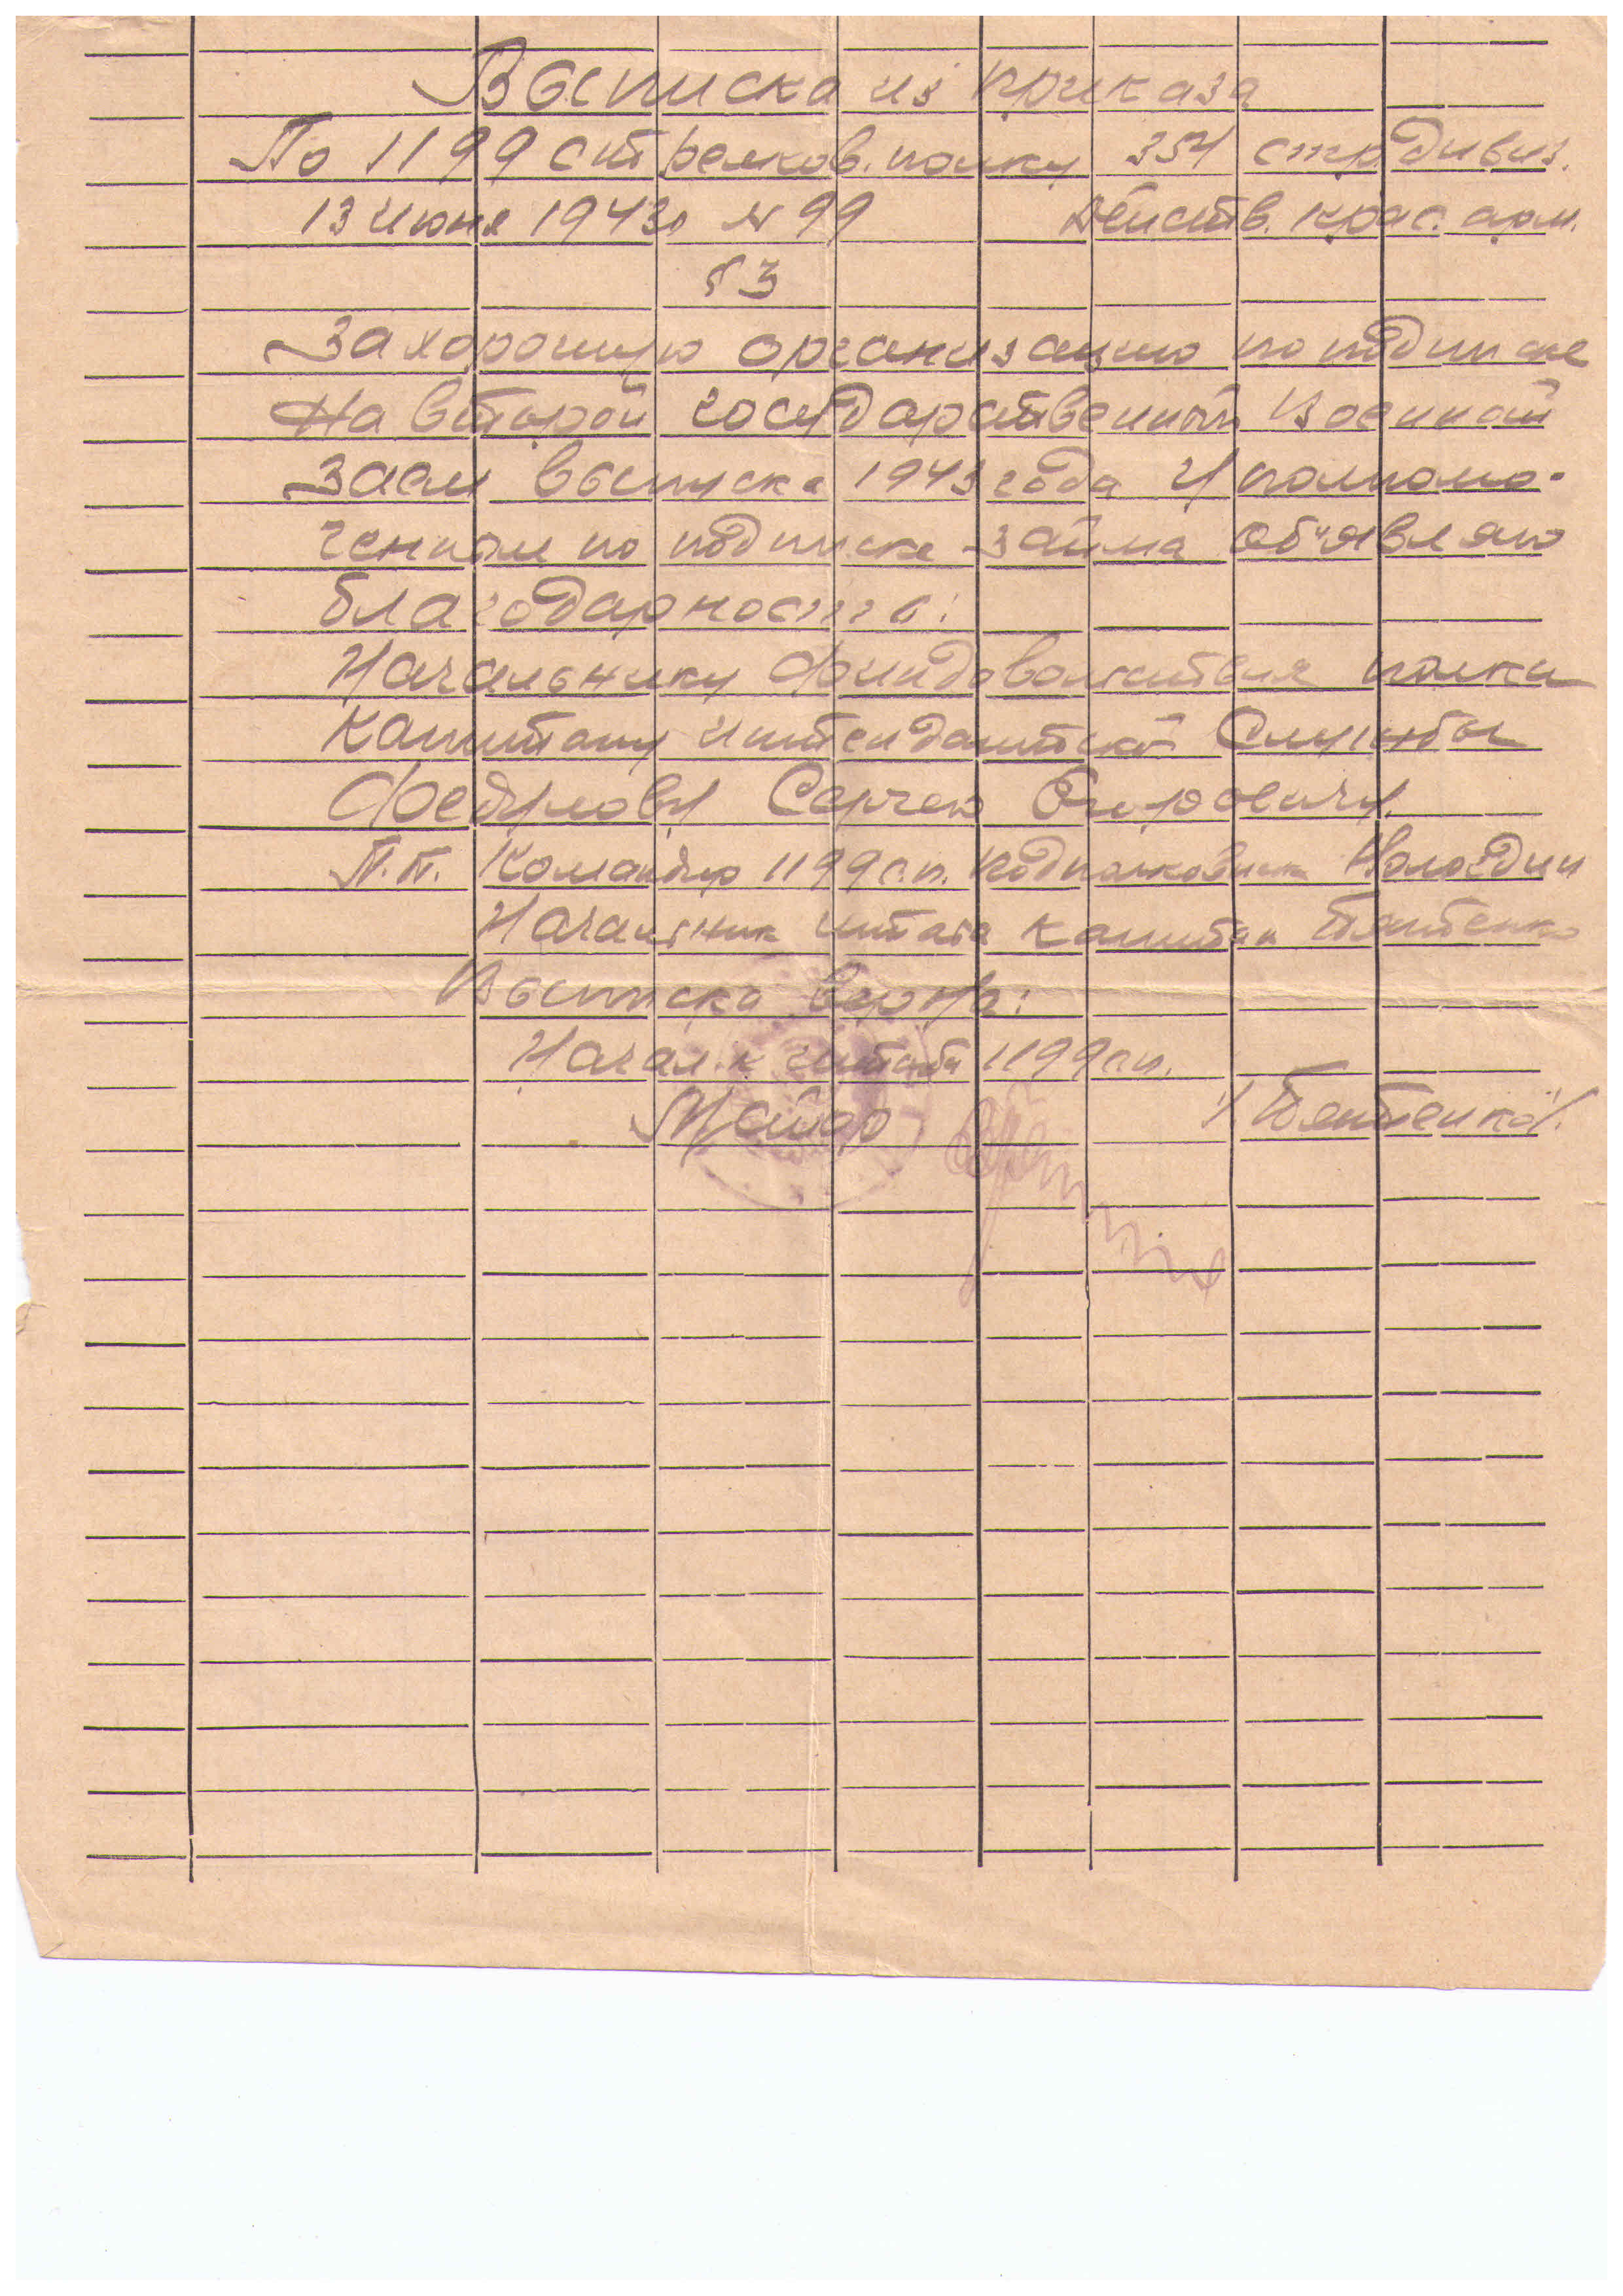 Выписка из приказа
По 1199 стрелков. полку 354 стр. дивиз.
13 июня 1943г № 99 Действ. Крас. арм.
§ 3
За хорошую организацию по подписке
на второй государственный военной
заем выпуска 1943 года Уполномо-
ченном по подписке займа об"являю
благодарность:
Начальнику финдовольствия полка
капитану интендантской Службы
Сергею
П.п. Командир 1199 с.п. подполковник
Начальник штаба капитан
Выписка верна:
Начал.к штаба 1199 с.п.
Майор